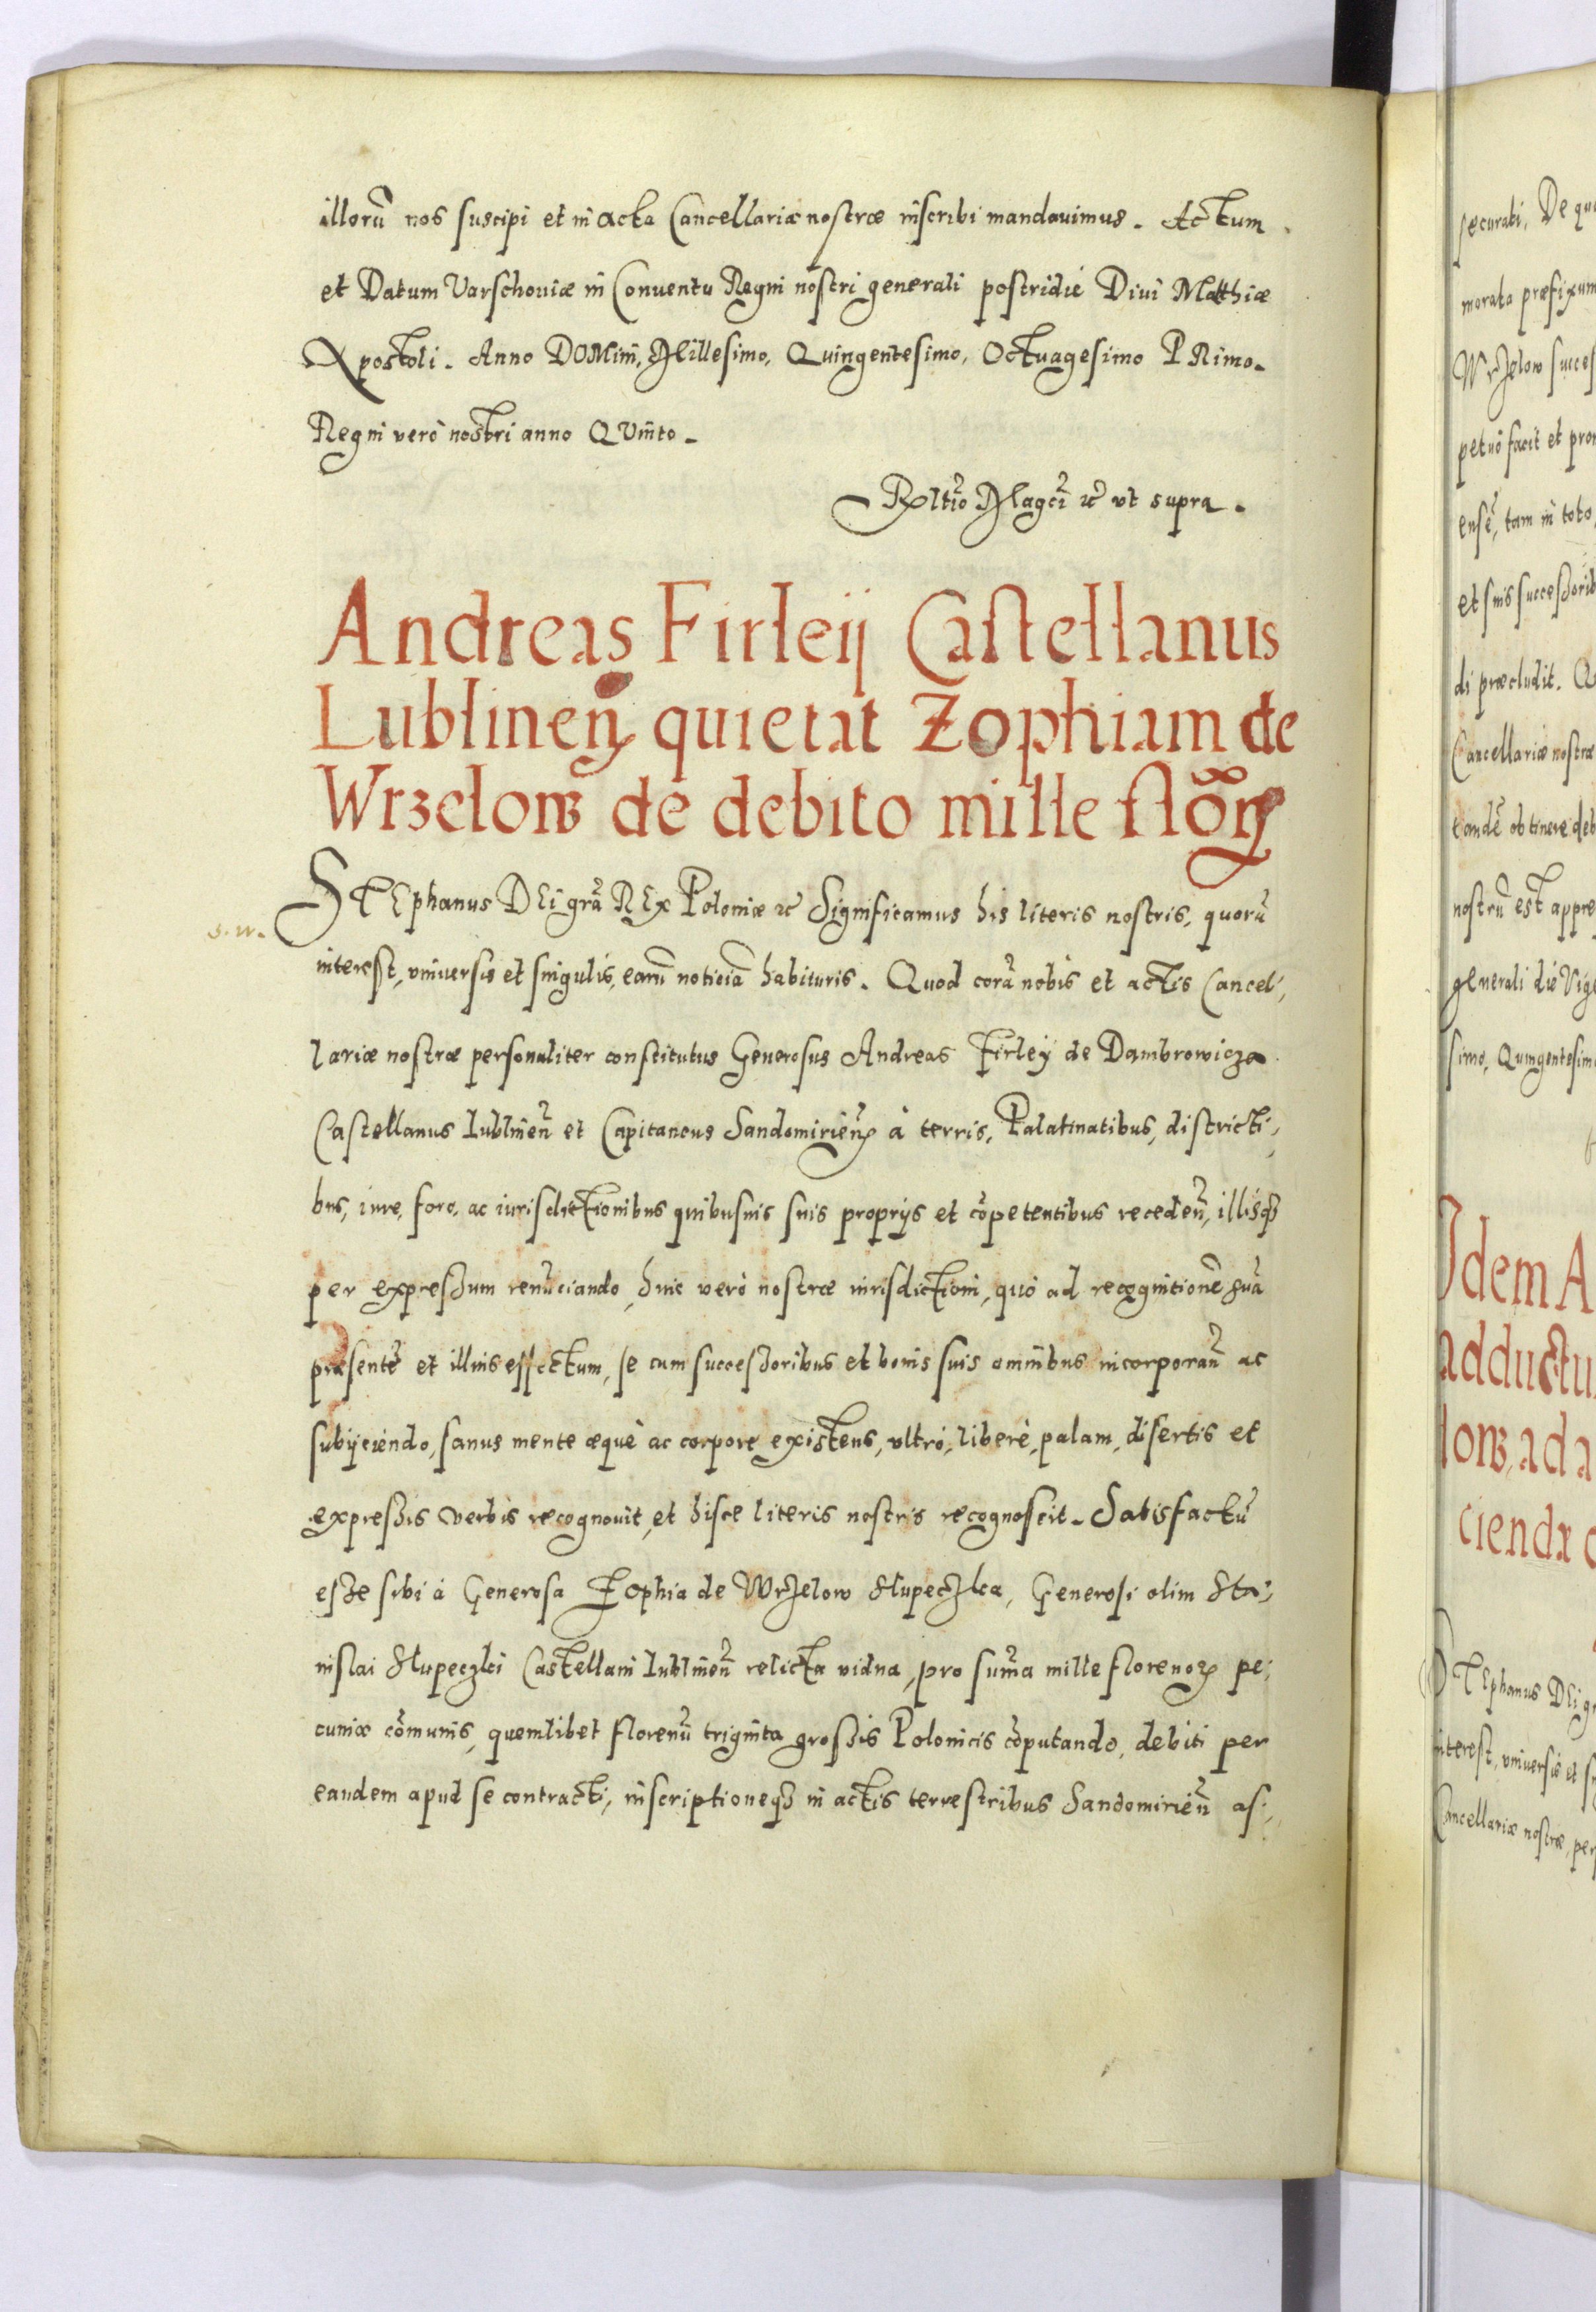 illorũ nos suscipi et in acta Cancellariæ nostræ inscribi mandauimus. Actum
et Datum Varschouiæ in Conuentu Regni nostri generali postridiè Diui Matthiæ
Apostoli. Anno DOMini, Millesimo, Quingentesimo, Octuagesimo PRimo.
Regni verò nostri anno QVinto.
Rłtio Magci ꝛc̃ vt supra.
Andreas Firleij Castellanus
Lublineñ quietat Zophiam de
Wrzelow de debito mille florꝝ
STEphanus DEi grã REx Poloniæ ꝛc̃ Significamus his literis nostris, quorũ
s. w.
interest, vniuersis et singulis, earũ noticiã habituris. Quod corã nobis et actis Cancel-
lariæ nostræ personaliter constitutus Generosus Andreas Firleÿ de Dambrowicza
Castellanus Lublineñ et Capitaneus Sandomirieñ à terris, Palatinatibus, districti-
bus, iure, foro, ac iurisdictionibus quibusuis suis proprijs et cõpetentibus recedeñ, illisq3
per expressum renũciando, huic verò nostræ iurisdictioni, quò ad recognitionẽ suã
præsentẽ et illius effectum, se cum successoribus et bonis suis omnibus incorporañ ac
subijciendo, sanus mente æquè ac corpore existens, vltrò, liberè, palam, disertis et
expressis verbis recognouit, et hisce literis nostris recognoscit. Satisfactũ
esse sibi à Generosa Zophia de Wrzelow Slupeczka, Generosi olim Sta-
nislai Slupeczki Castellani Lublineñ relicta vidua, pro sum̃a mille florenoꝝ pe-
cuniæ cõmunis, quemlibet florenũ triginta grossis Polonicis cõputando, debiti per
eandem apud se contracti, inscriptioneq3 in actis terrestribus Sandomirieñ as-
securati, De qu
morata præfixum
Wrzelow succes
petuò facit et pro
ensẽ, tam in toto,
et suis successorib
di præcludit. Q
Cancellariæ nostræ
tandẽ obtinere deb
nostrũ est appre
generali die Vige
simo, Quingentesim
Idem A
adductu
low, ad a
ciendx
STEphanus DEi g
interest, vniuersis et si
Cancellariæ nostræ, per